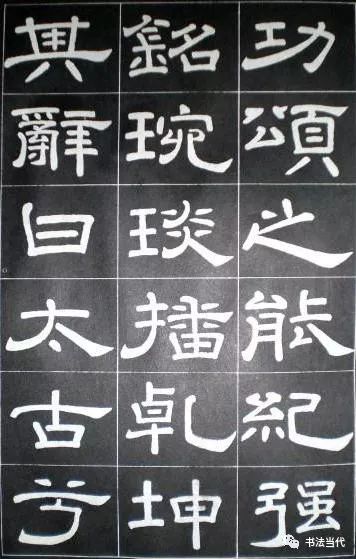 功頌之能紀强
銘琬琰播乾坤
其辭曰太古兮
书法当代